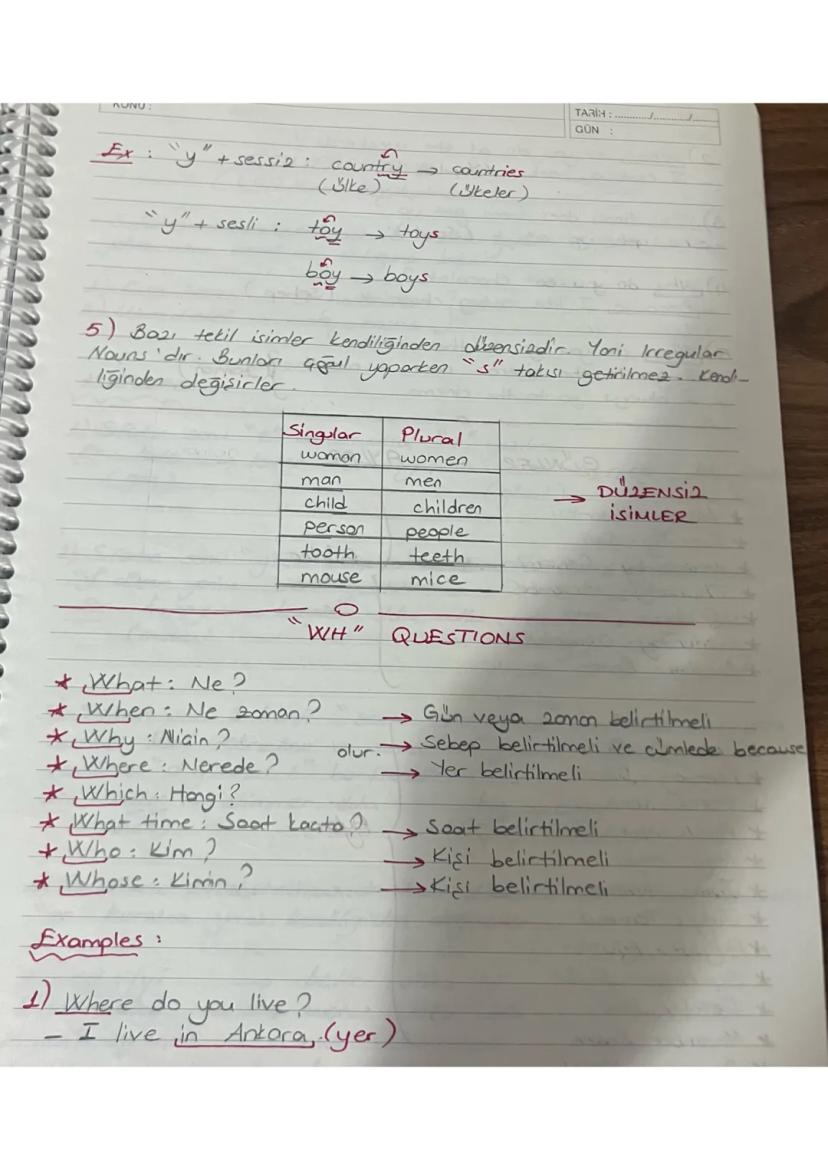 KONU :
TARİH : ............/............/............
GÜN :
Ex : "y" + sessiz : country → countries
(ülke) (ülkeler)
"y" + sesli : toy → toys
boy → boys
5) Bazı tekil isimler kendiliğinden düzensizdir. Yani Irregular
Nouns'dır. Bunları çoğul yaparken "s" takısı getirilmez. Kendi-
liğinden değişirler.
Singular Plural
woman women
man men
child children
person people
tooth teeth
mouse mice
→ DÜZENSİZ
İSİMLER
"WH" QUESTIONS
* What : Ne?
* When : Ne zaman? → Gün veya zaman belirtilmeli
* Why : Niçin? → Sebep belirtilmeli ve cümlede because
olur.
* Where : Nerede? → Yer belirtilmeli
* Which : Hangi?
* What time : Saat kaçta? → Saat belirtilmeli
* Who : Kim? → Kişi belirtilmeli
* Whose : Kimin? → Kişi belirtilmeli
Examples :
1) Where do you live?
- I live in Ankara. (yer)